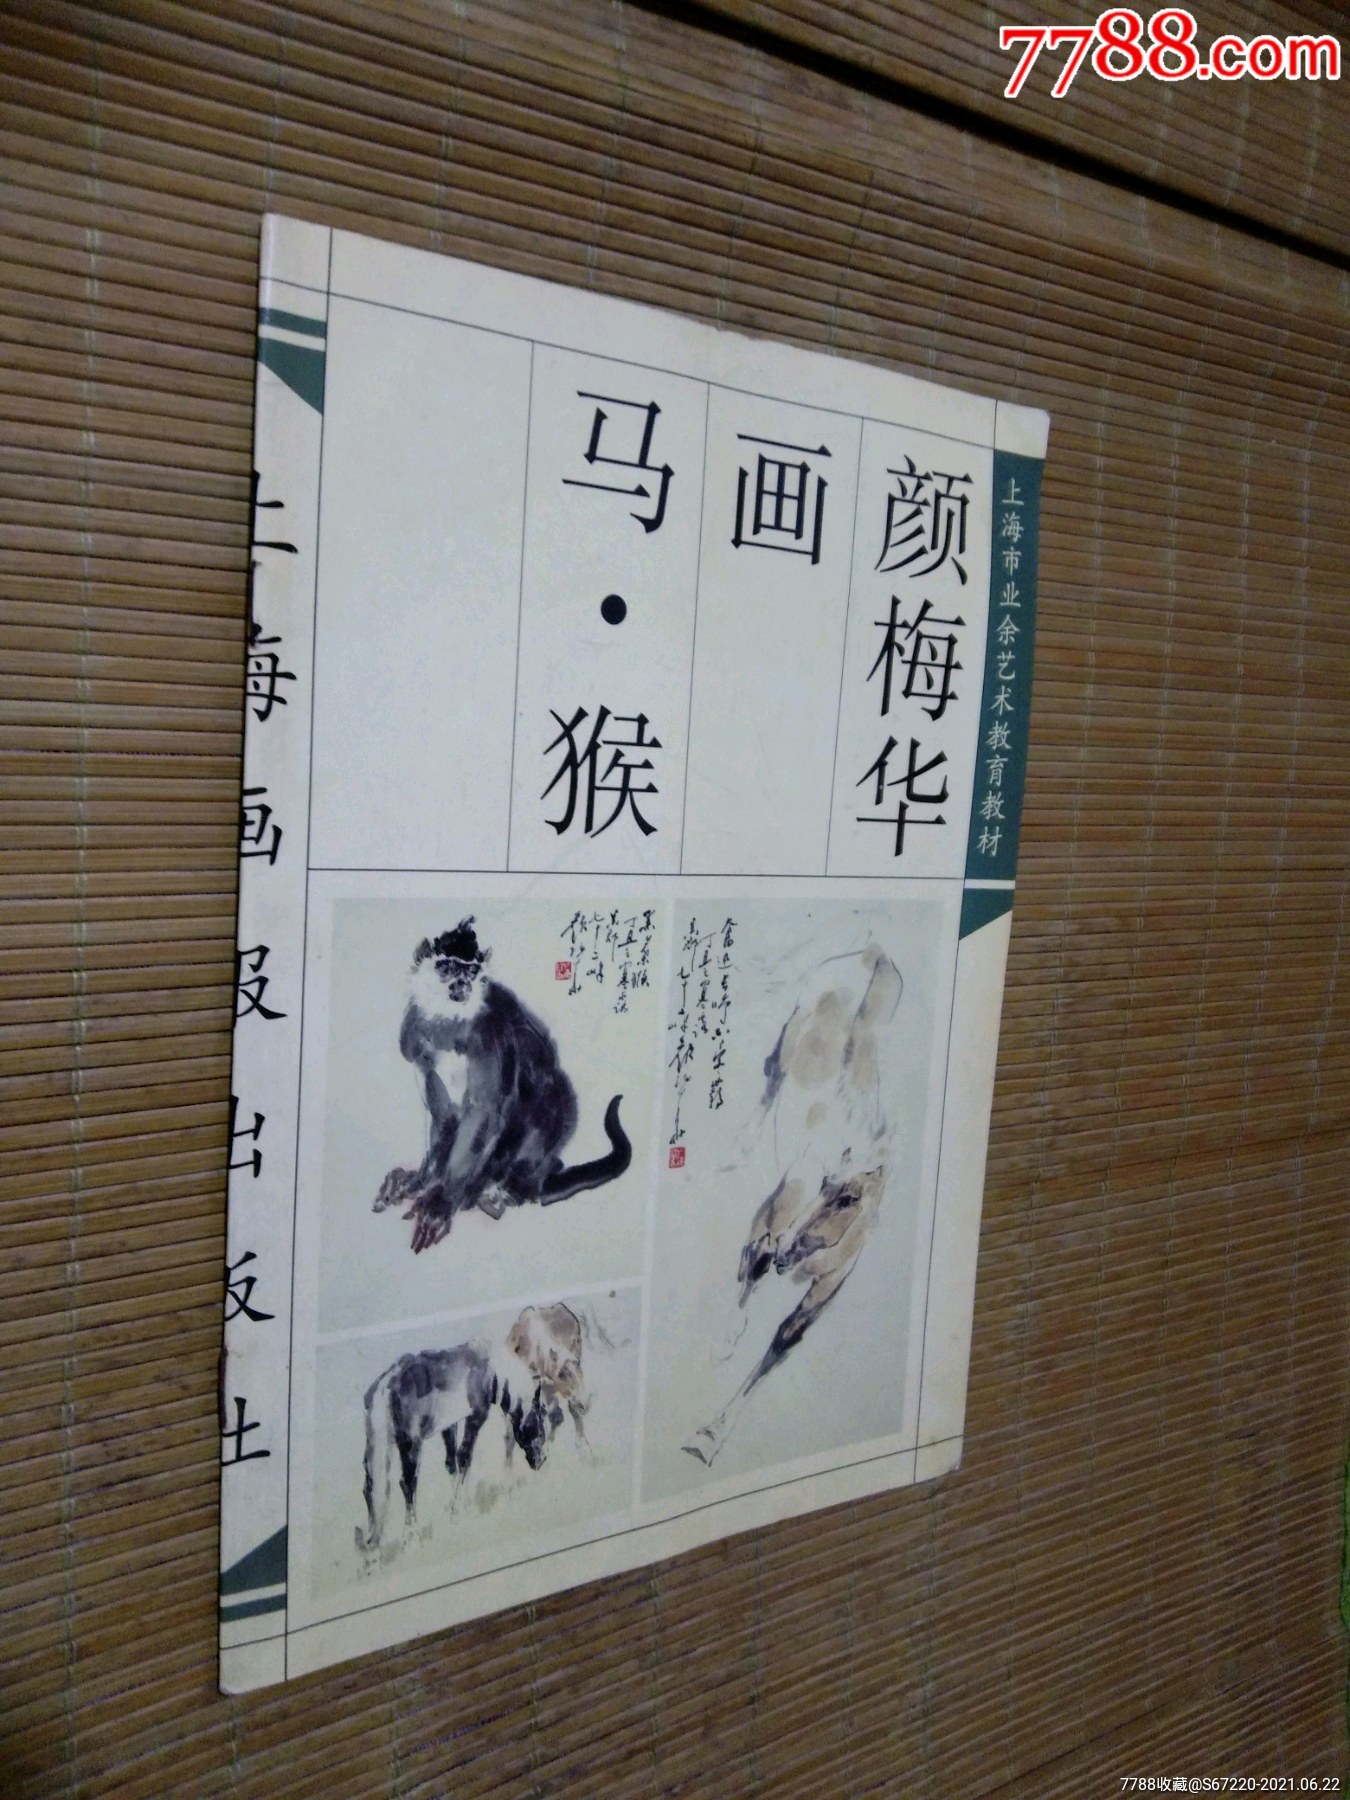 7788.com
上海市业余艺术教育教材
颜梅华
画
马·猴
上海画报出版社
7788收藏@S67220-2021.06.22